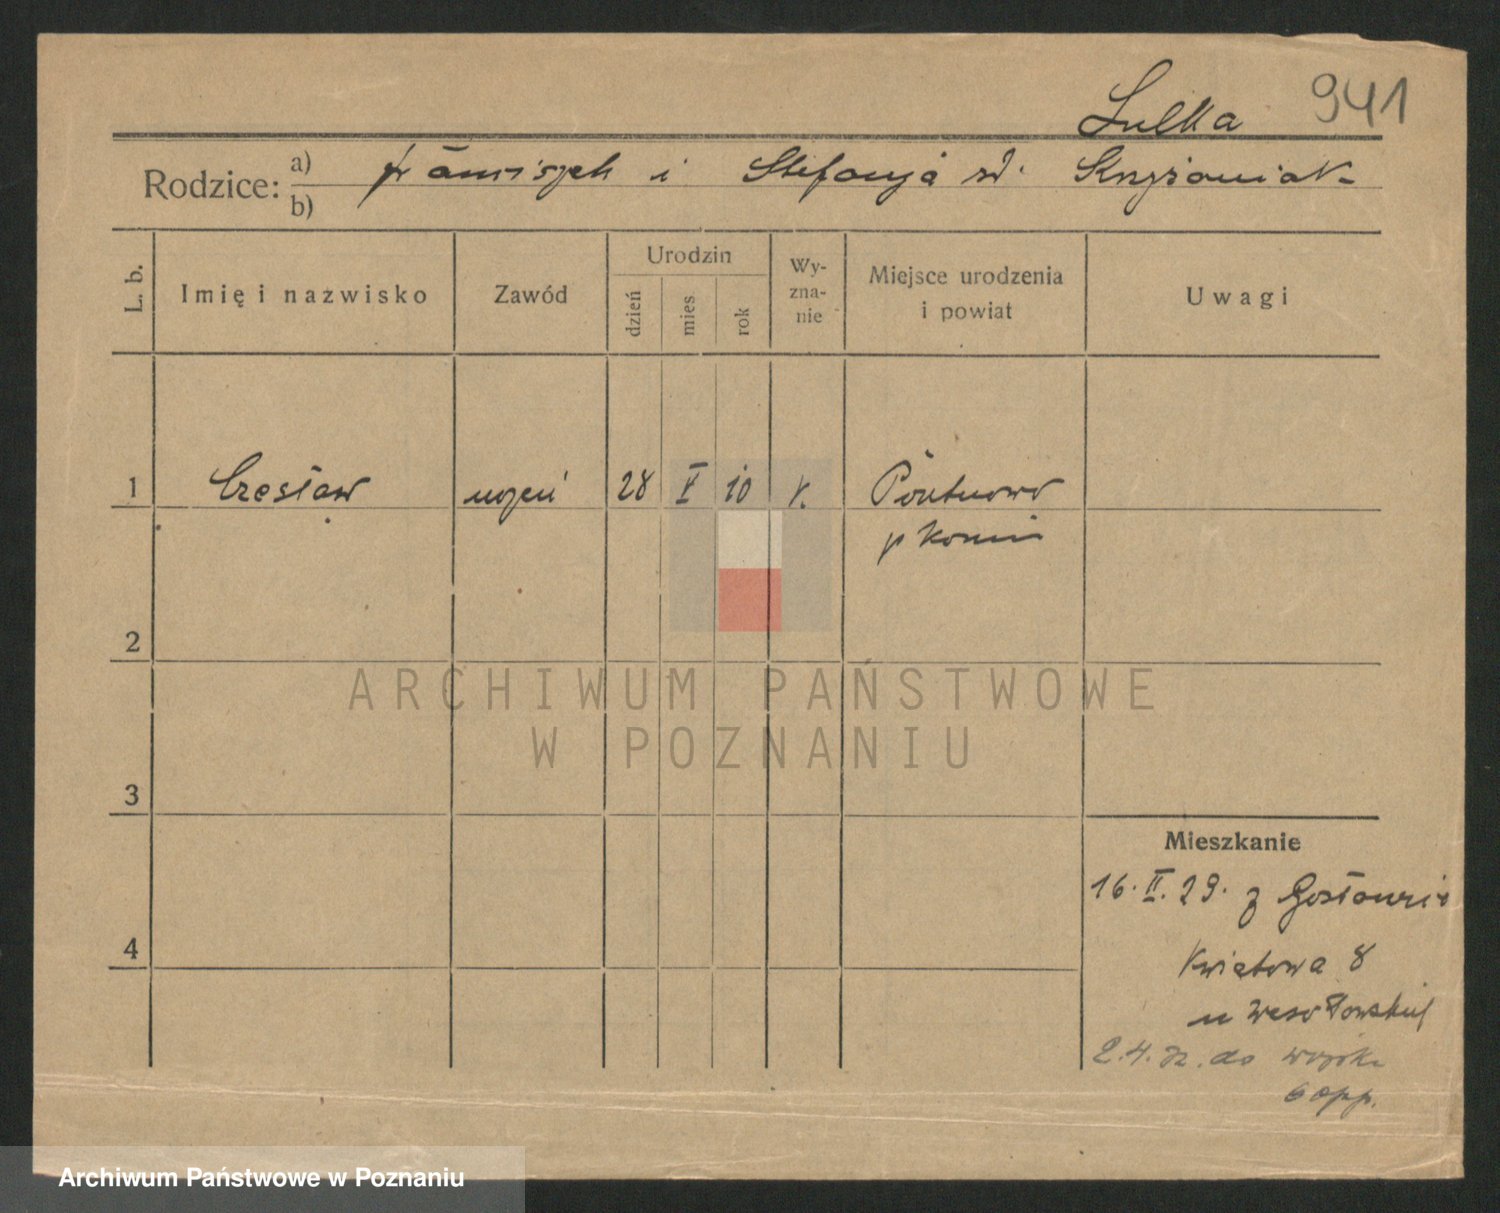 Lulka 941
Rodzice: a) b) Franciszek i Stefanja zd. Krzyżaniak
L. b. Imię i nazwisko Zawód Urodzin dzień mies rok Wy-zna-nie Miejsce urodzenia i powiat Uwagi
1 Czesław uczeń 28 V 10 k. Piotrowo
p Konin
2
ARCHIWUM PAŃSTWOWE
W POZNANIU
3
Mieszkanie
16. II. 29. z Gosławic
4
Kwiatowa 8
u Wesołowskiej
2.4. do wojska
6 opp.
Archiwum Państwowe w Poznaniu